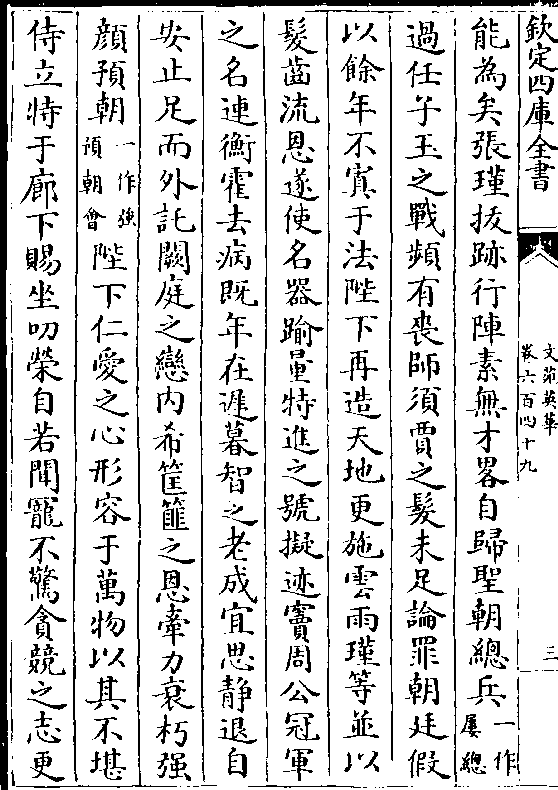 欽定四庫全書
文苑英華
卷六百四十九
三
能為矣張瑾拔跡行陣素無才畧自歸聖朝總兵一作屢總
過任子玉之戰頻有喪師須賈之髮未足論罪朝廷假
以餘年不寘于法陛下再造天地更施雲雨瑾等並以
髮齒流恩遂使名器踰量特進之號擬迹竇周公冠軍
之名連衡霍去病既年在遲暮智之老成宜思静退自
安止足而外託闕庭之戀内希筐篚之恩牽力衰朽强
顔預朝一作強預朝會陛下仁愛之心形容于萬物以其不堪
侍立特于廊下賜坐叨榮自若聞寵不驚貪競之志更